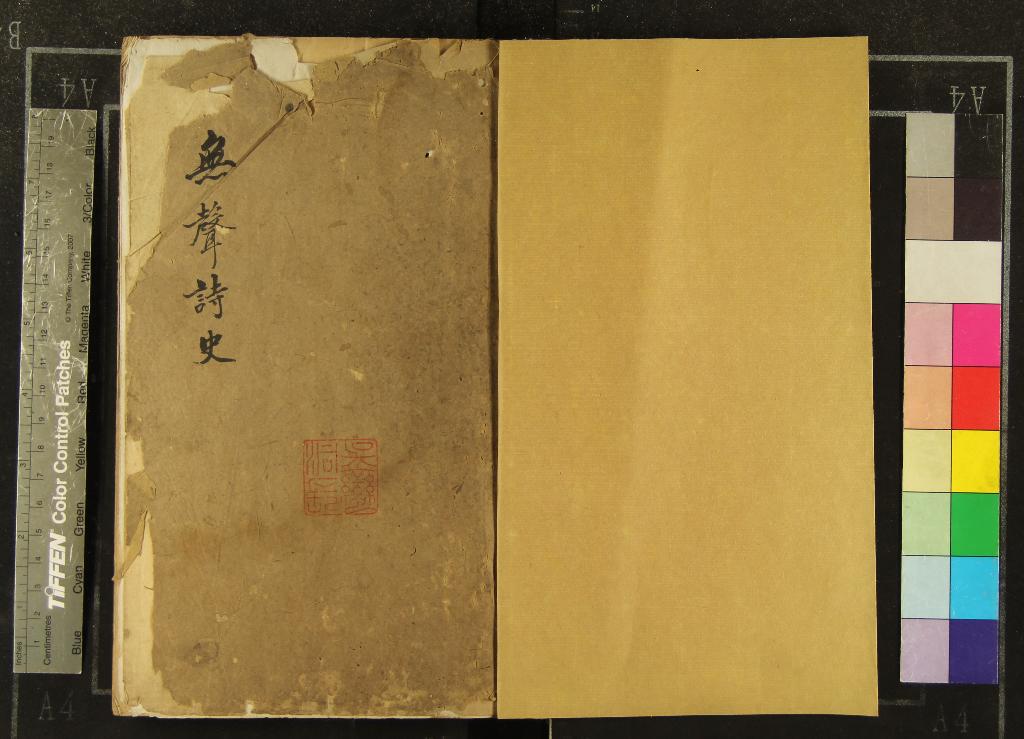 無聲詩史
Inches
Centimetres
TIFFEN Color Control Patches
© The Tiffen Company, 2007
Blue
Cyan
Green
Yellow
Red
Magenta
White
3/Color
Black
1 2 3 4 5 6 7 8 9 10 11 12 13 14 15 16 17 18 19
A4
A4
A4
A4
B